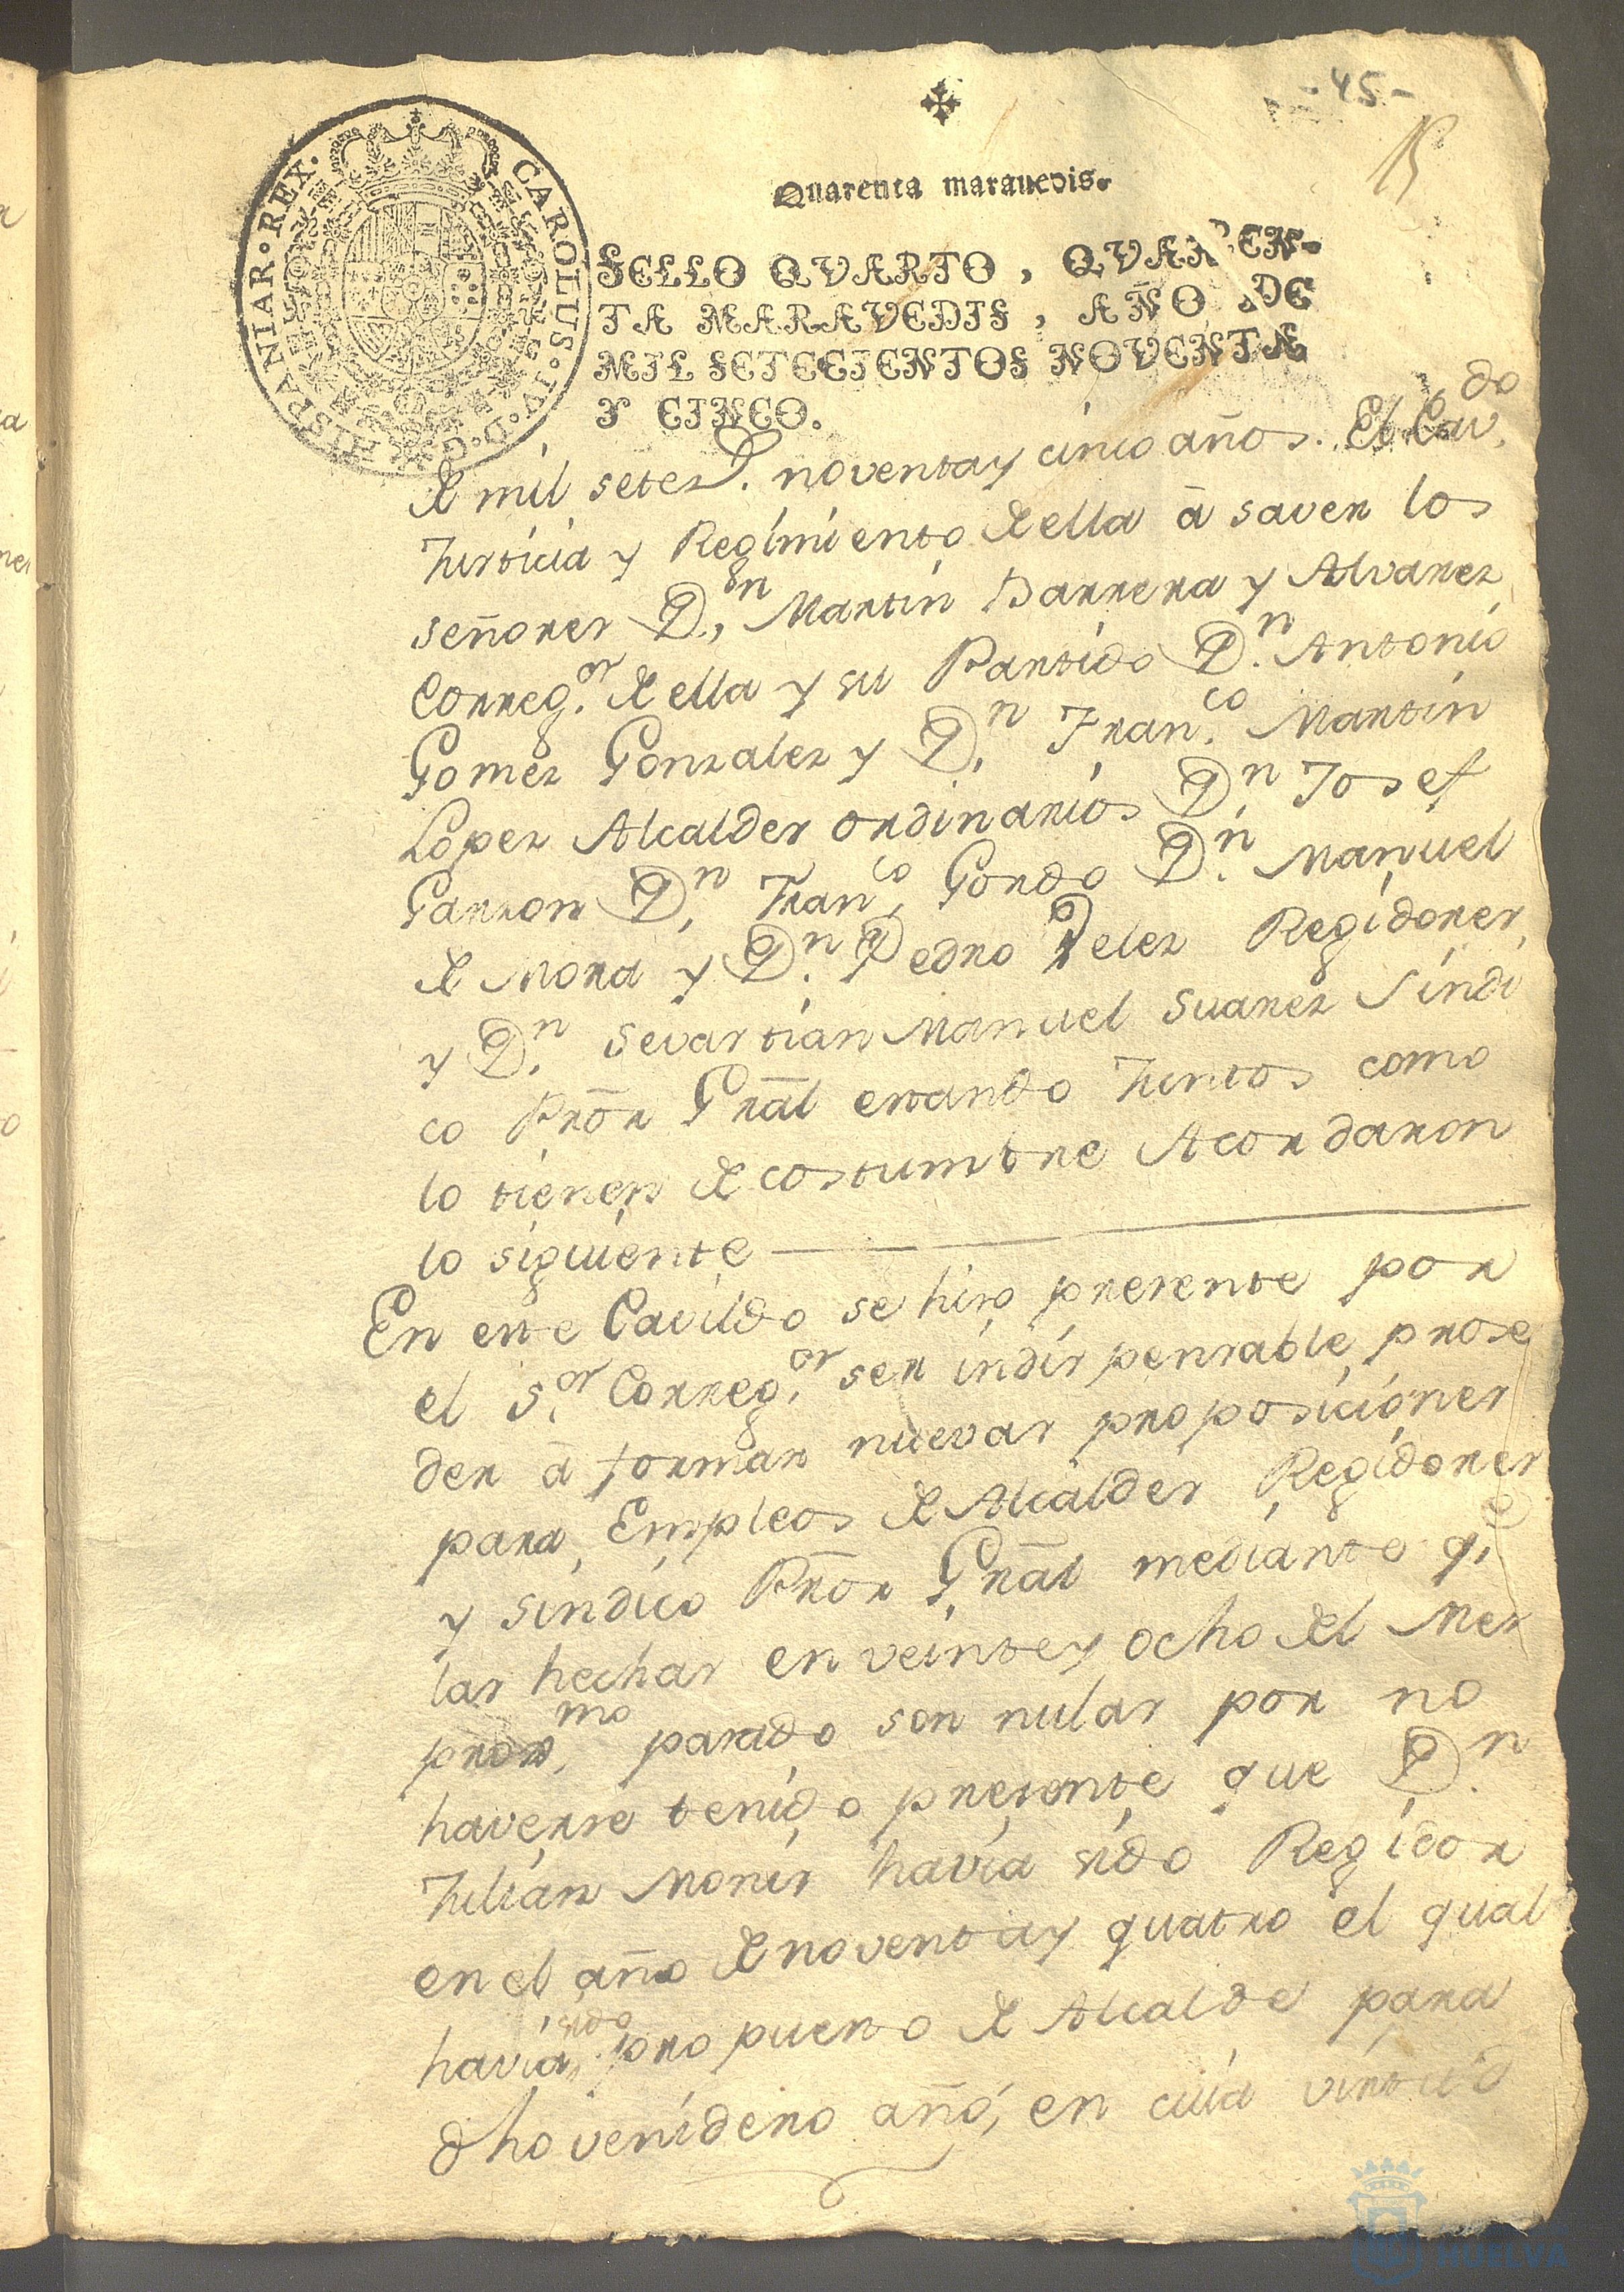 -45-
Quarenta marauedis.
CAROLUS·IV·D·G·HISPANIAR·REX·
SELLO QVARTO, QVAREN-
TA MARAVEDIS, AÑO DE
MIL SETECIENTOS NOVENTA
Y CINCO.
de mil setez.s noventa y cinco años. El Cav.do
Justicia y Regimiento de ella â saver los
señores D.n Martin Barrera y Alvarez
Correg.or de ella y su Partido D.n Antonio
Gomez Gonzalez y D.n Fran.co Martin
Lopez Alcaldes ordinarios D.n Josef
Garzon D.n Fran.co Gordo D.n Manuel
de Mora y D.n Pedro Velez Regidores,
y D.n Sevastian Manuel Suarez Sindi
co Prõr Grãl estando Juntos como
lo tienen de costumbre Acordaron
lo siguiente
En este Cavildo se hizo presente por
el S.or Correg.or ser indispensable prose
der â formar nuevas proposiciones
para Empleos de Alcaldes Regidores
y sindico Prõr Grãl mediante q.e
las hechas en veinte y ocho del Mes
prox.mo pasado son nulas por no
haverse tenido presente que D.n
Julian Monis havia sido Regidor
en el año de noventa y quatro el qual
havia sido propuesto de Alcalde para
dho venidero año, en cuia virtud
HUELVA